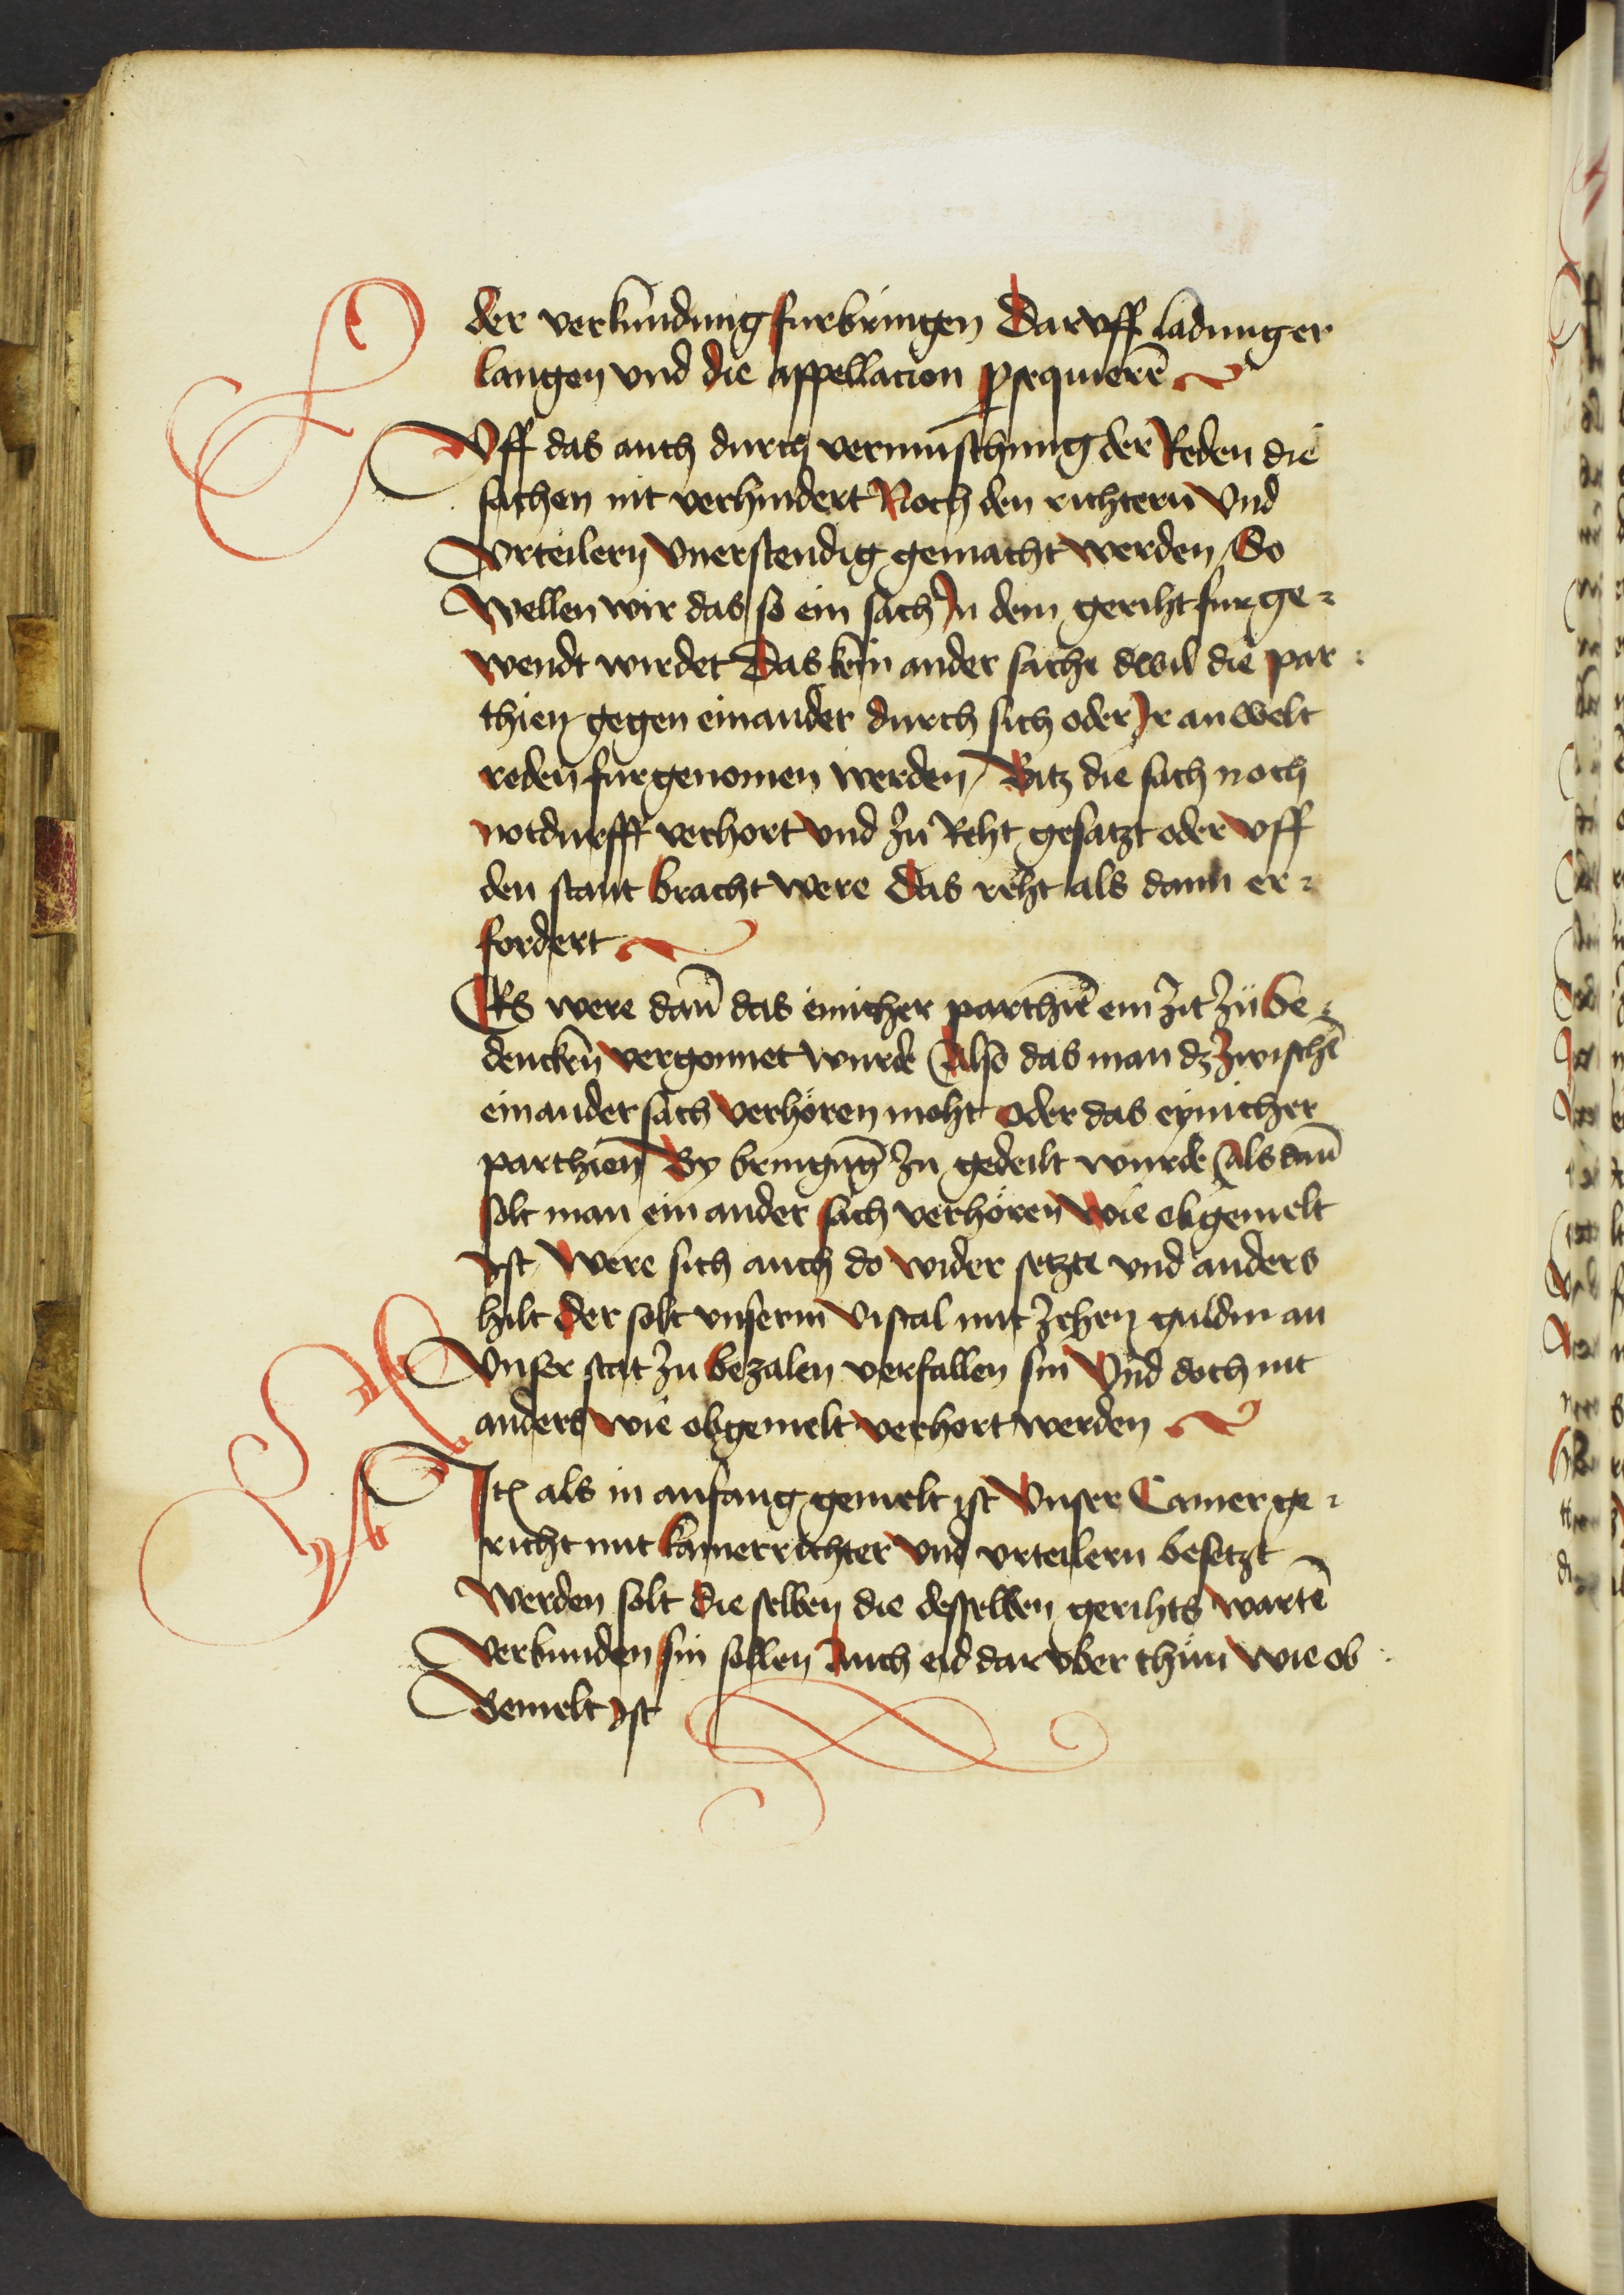 der verkundung furbringen Dar vff ladung er
langen vnd die appellacion ꝓsequierē
Uff das auch durch vermischung der Reden die
sachen nit verhindert Noch den richtern Vnd
Vrteilern Vnerstendig gemacht werden / So
Wellen wir das so ein sach Jn dem geriht fur ge-
wendt wirdet Das kein ander sache dwil die par-
thien gegen einander durch sich oder Jr anwelt
reden fur genomen werden / Bitz die sach noch
notdurfft verhort vnd zu Reht gesatzt oder vff
den stant bracht were das reht als dann er-
fordert
Es were dan̄ das einicher parthiē ein zit zu be-
dencken vergonnet wurde Also das man dzzwischē
ein ander sach verhören moht oder das eynicher
parthien By bringūg zu gedeilt wurde Als dan̄
solt man ein ander sach verhören wie obgemelt
Jst / Were sich auch do wider setzte vnd anders
hilt der solt vnserm Viscal mit zehen guldin an
Vnser stat zu bezalen verfallen sin Vnd doch nit
anders wie obgemelt verhort werden
Itē als in anfang gemelt ist Vnser Camer ge-
richt mit kamerrichter vnd vrteilern besetzt
werden solt die selben die desselben gerihts wartē
Verbunden sin sollen Auch eid dar vber thun wie ob
Gemelt Jst